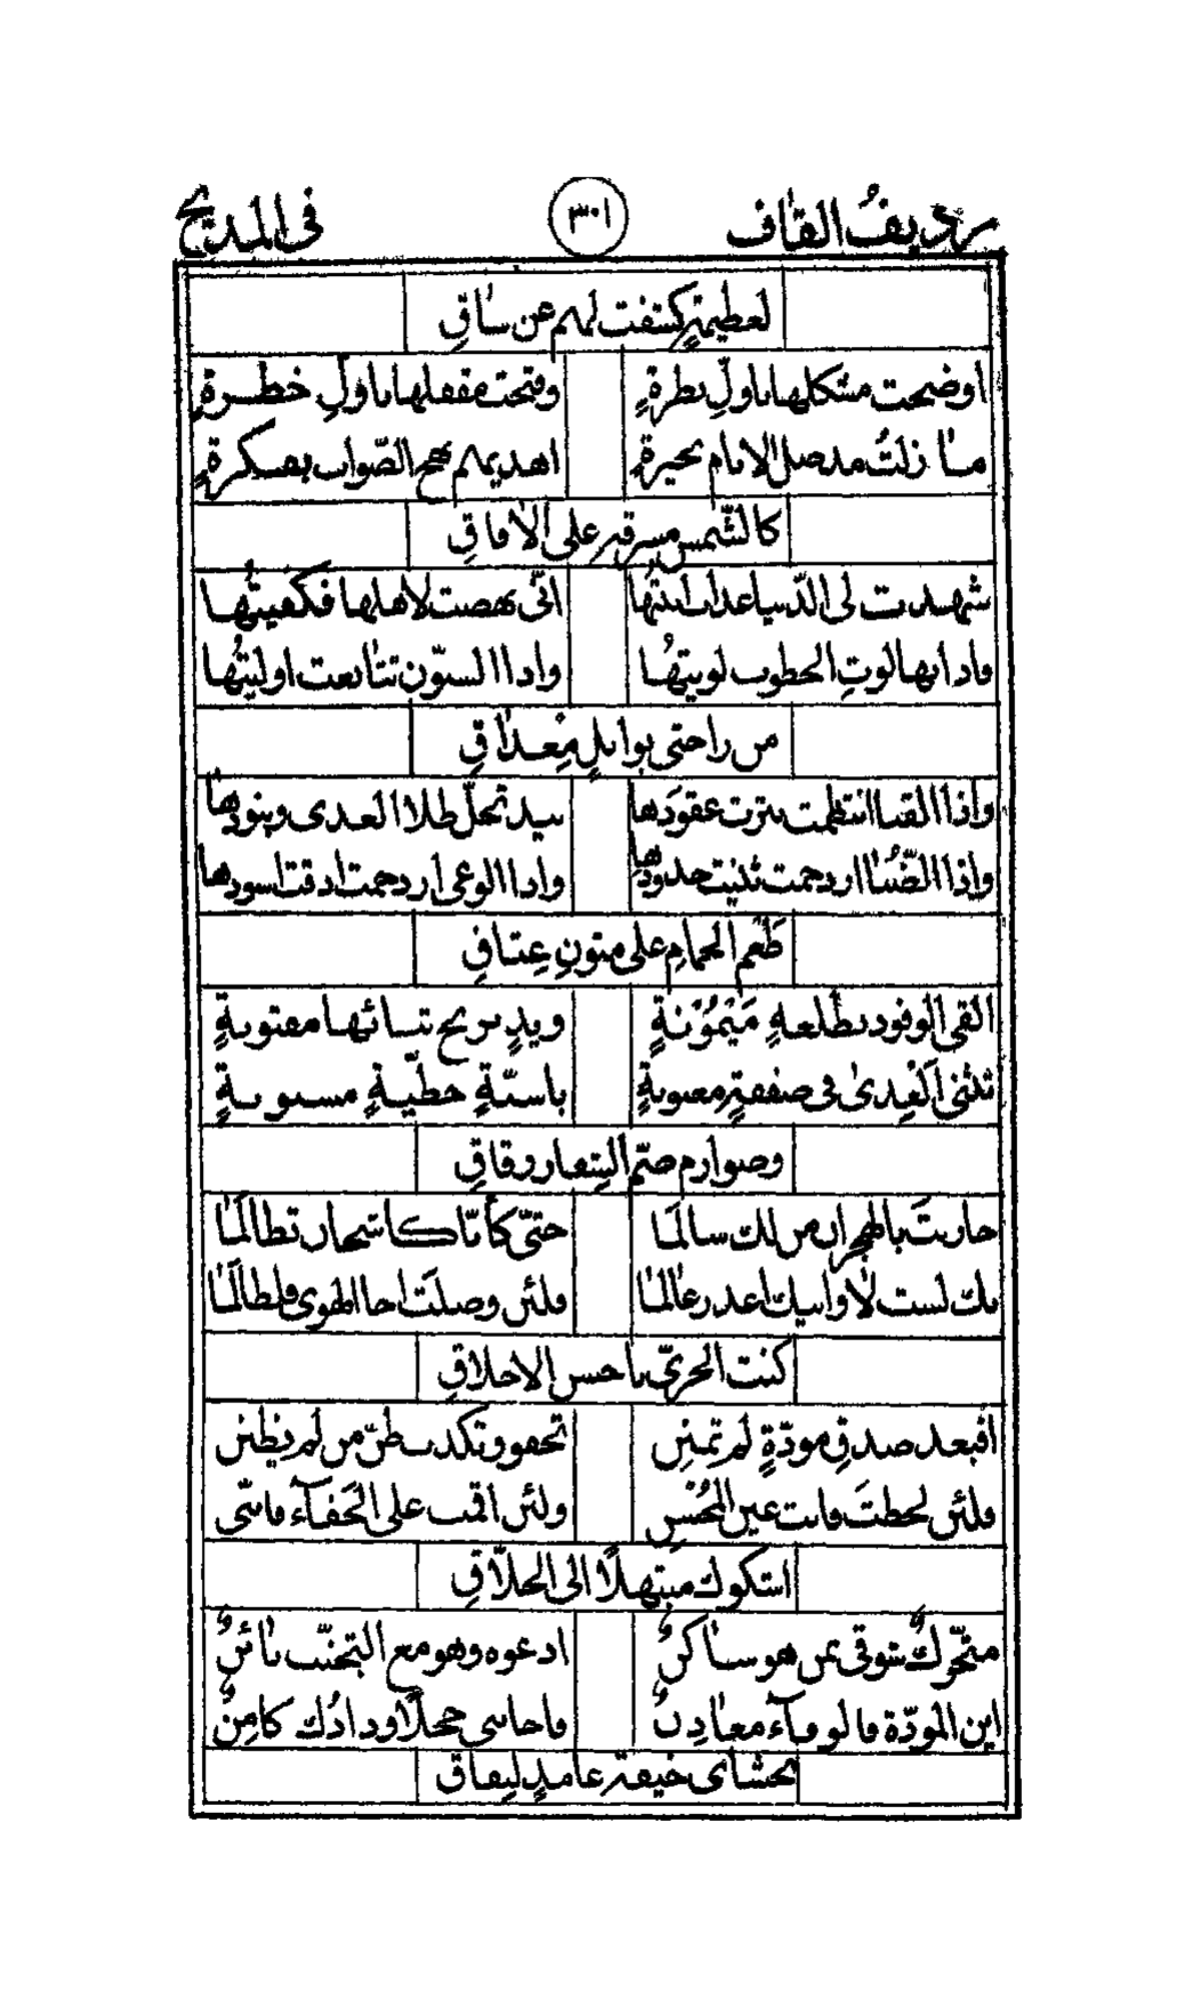 رديفُ القاف ٣٠١ فى المديح
لعظيمةٍ كشفت لهم عن ساقِ
اوضحت مشكلها باولِ نظرةٍ وفتحت مقفلها باولِ خطرةٍ
ما زلتُ مذ ضل الانام بحيرةٍ اهديهم نهج الصّواب بفكرةٍ
كالشّمس مشرقةٍ على الآفاقِ
شهدت لى الدّنيا غداة ابنتُها انّى نهضت لاهلها فكفيتُها
واذا بها الوتِ الخطوب لويتهُا واذا السنون تتابعت اوليتُها
من راحتى بوابلٍ مِغداقِ
واذا القنا انتظمت نثرت عقودَها بيد تحلّ طلا العدى وبنودها
واذا الظُّبا ازدحمت ثنيت حدودها واذا الوغى ازدحمت اذقت اسودها
طَعم الحِمامِ على متونِ عِتاقِ
القى الوفود بطلعةٍ مَيْمُوْنةٍ ويدٍ بربح ثنائها مفتونةٍ
تثنى اَلْعِدىٰ فى صفقةٍ مغبونةٍ باسنّةٍ خطّيةٍ مسنونةٍ
وصوارم صمّ الشِفار رقاقِ
حاربتَ بالهجران من لك سالَمَا حتىّ كأنّا كاشحان تظالَمٰا
بك لست لا وابيك اعذر عٰالمٰا فلئن وصلتَ اخا الهوى فلطالَمٰا
كنت الحرىّ باحسن الاخلاقِ
افبعد صدقِ مودّةٍ لم تمنِن تجفو وتكذب ظنّ من لم يظنن
فلئن لحظتَ فانت عين المُحْسنِ ولئن اقمت على الجَفآء فانّنى
اشكوك مبتهلًا الى الخلّاقِ
متحّركٌ شوقى بمن هو ساكنٌ ادعوه وهو مع التجنّب بائنٌ
اين المودّة فالوفآء معادِنٌ فاجابنى خجلًا ودادُك كامِنٌ
بحشاى خيفة عامدٍ لنِفاق